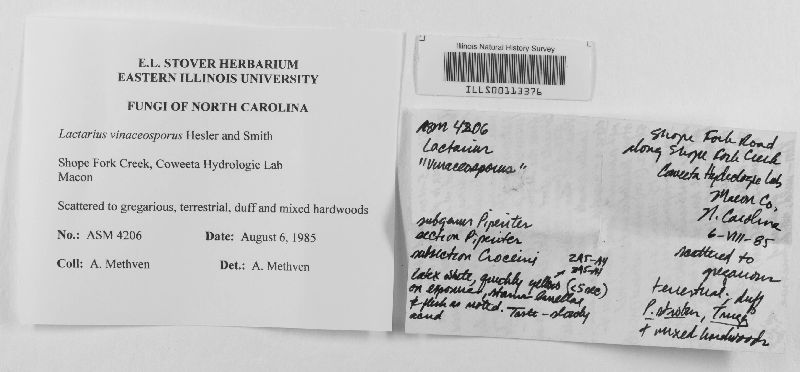 E.L. STOVER HERBARIUM
EASTERN ILLINOIS UNIVERSITY
FUNGI OF NORTH CAROLINA
Lactarius vinaceosporus Hesler and Smith
Shope Fork Creek, Coweeta Hydrologic Lab
Macon
Scattered to gregarious, terrestrial, duff and mixed hardwoods
No.: ASM 4206 Date: August 6, 1985
Coll: A. Methven Det.: A. Methven
Illinois Natural History Survey
ILLS00113376
ASM 4206
Lactarius
"Vinaceosporus"
subgenus Piperites
section Piperites
subsection Croceini 2A5-A4
2A5-A4
latex white, quickly yellow (<5 sec)
on exposure, stains lamellae
& flesh as noted. Taste - slowly
acrid
Shope Fork Road
along Shope Fork Creek
Coweeta Hydrologic Lab
Macon Co.
N. Carolina
6-VIII-85
scattered to
gregarious
terrestrial. duff
P. strobus, Tsuga
& mixed hardwoods